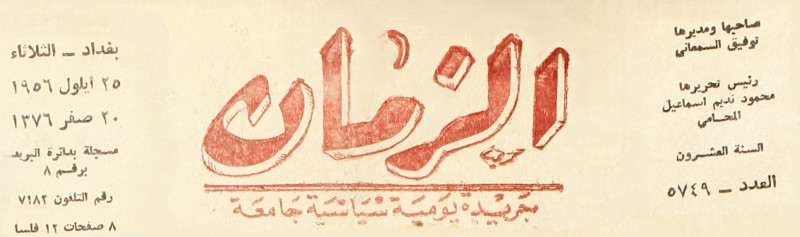 صاحبها ومديرها
توفيق السمعاني
رئيس تحريرها
محمود نديم اسماعيل
المحامي
السنة العشرون
العدد – ٥٧٤٩
الزمان
جريدة يومية سياسية جامعة
بغداد – الثلاثاء
٢٥ أيلول ١٩٥٦
٢٠ صفر ١٣٧٦
مسجلة بدائرة البريد
برقم ٨
رقم التلفون ٧١٨٢
٨ صفحات ١٢ فلسا